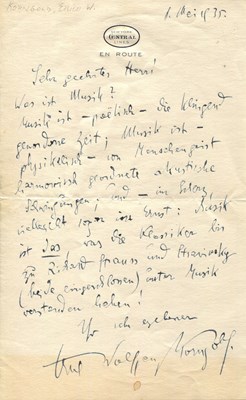 Korngold, Erich W.
NEW YORK
CENTRAL
LINES
EN ROUTE
1. Mai 1935.
Sehr geehrter Herr!
Was ist Musik?
Musik ist – poetisch – die klingend
gewordene Zeit; Musik ist –
physikalisch – von Menschengeist
harmonisch geordnete akustische
Schwingungen; und – im
vielleicht sogar im Ernst: Musik
ist das was die Klassiker bis
zu Richard Strauss und Strawinsky
(beide eingeschlossen) unter Musik
verstanden haben!
Ihr ergebener
Erich Wolfgang Korngold.